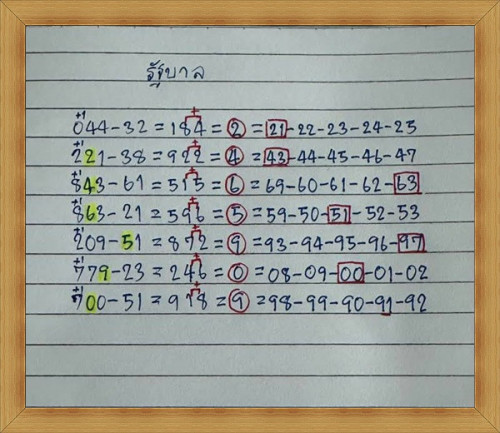 รัฐบาล
044-32 = 184 = 2 = 21-22-23-24-25
221-38 = 922 = 4 = 43-44-45-46-47
843-61 = 515 = 6 = 69-60-61-62-63
863-21 = 596 = 5 = 59-50-51-52-53
209-51 = 872 = 9 = 93-94-95-96-97
779-23 = 246 = 0 = 08-09-00-01-02
700-51 = 918 = 9 = 98-99-90-91-92